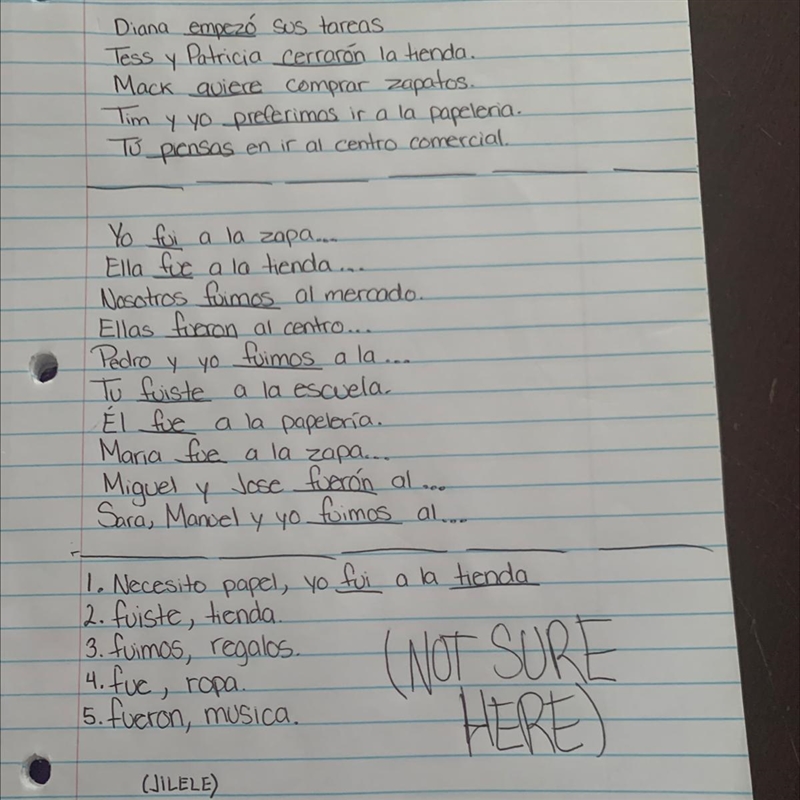 Diana empezó sus tareas
Tess y Patricia cerrarón la tienda.
Mack quiere comprar zapatos.
Tim y yo preferimas ir a la papeleria.
Tú piensas en ir al centro comercial.
Yo fui a la zapa...
Ella fue a la tienda...
Nosotros fuimos al mercado.
Ellas fueron al centro...
Pedro y yo fuimos a la...
Tu fuiste a la escuela.
Él fue a la papelería.
Maria fue a la zapa...
Miguel y Jose fuerón al...
Sara, Manuel y yo fuimos al...
1. Necesito papel, yo fui a la tienda
2. fuiste, tienda.
3. fuimos, regalos.
4. fue, ropa.
5. fueron, musica.
(NOT SURE
HERE)
(JILELE)